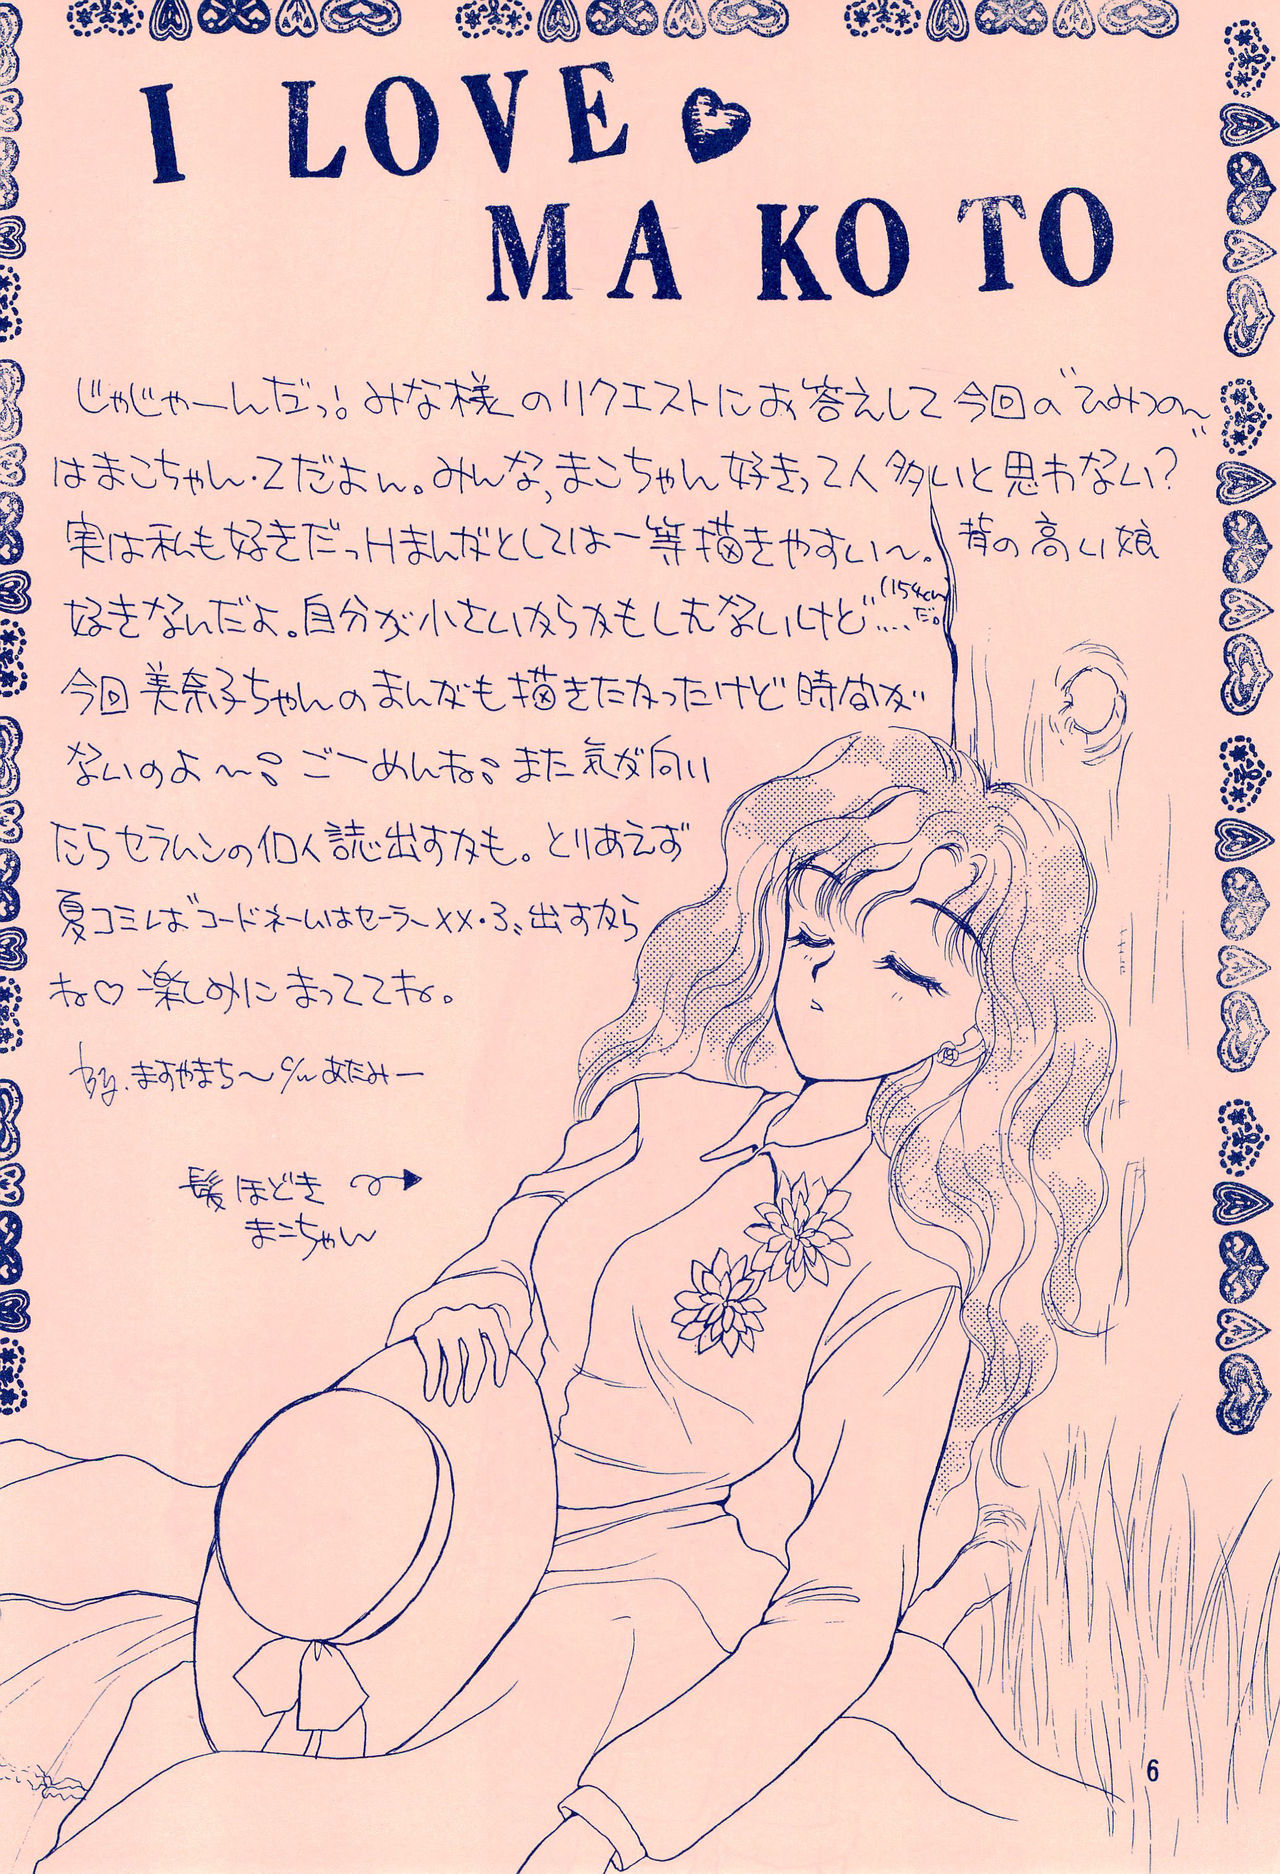 I LOVE♥
MAKOTO
じゃじゃーんだっ!みな様のリクエストにお答えして今回の“ひみつの〜”
はまこちゃん・Zだよん。みんな,まこちゃん好きって人多いと思わない?
実は私も好きだっHまんがとしては一等描きやすい〜。背の高い娘
好きなんだよ。自分が小さいからかもしんないけど…‥(154cm
だ。)
今回美奈子ちゃんのまんがも描きたかったけど時間が
ないのよ〜ごーめんねまた気が向い
たらセラムンの個人誌出すかも。とりあえず
夏コミには“コードネームはセーラーXX・3”出すから
ね♡楽しみにまっててね。
by.ますやまち〜 あたみー
髪ほどき
まこちゃん
6